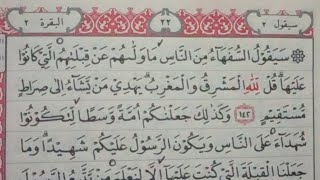 سيقول ٢
٢٢
البقرة ٢
سَيَقُولُ السُّفَهَاءُ مِنَ النَّاسِ مَا وَلّٰىهُمْ عَنْ قِبْلَتِهِمُ الَّتِي كَانُوا
عَلَيْهَا ۗ قُلْ لِلّٰهِ الْمَشْرِقُ وَالْمَغْرِبُ ۗ يَهْدِي مَنْ يَشَاءُ إِلَى صِرَاطٍ
مُسْتَقِيمٍ ﴿١٤٢﴾ وَكَذٰلِكَ جَعَلْنٰكُمْ أُمَّةً وَسَطًا لِتَكُونُوا
شُهَدَاءَ عَلَى النَّاسِ وَيَكُونَ الرَّسُولُ عَلَيْكُمْ شَهِيدًا ۗ وَمَا
جَعَلْنَا الْقِبْلَةَ الَّتِي كُنْتَ عَلَيْهَا إِلَّا لِنَعْلَمَ مَنْ يَتَّبِعُ الرَّسُولَ